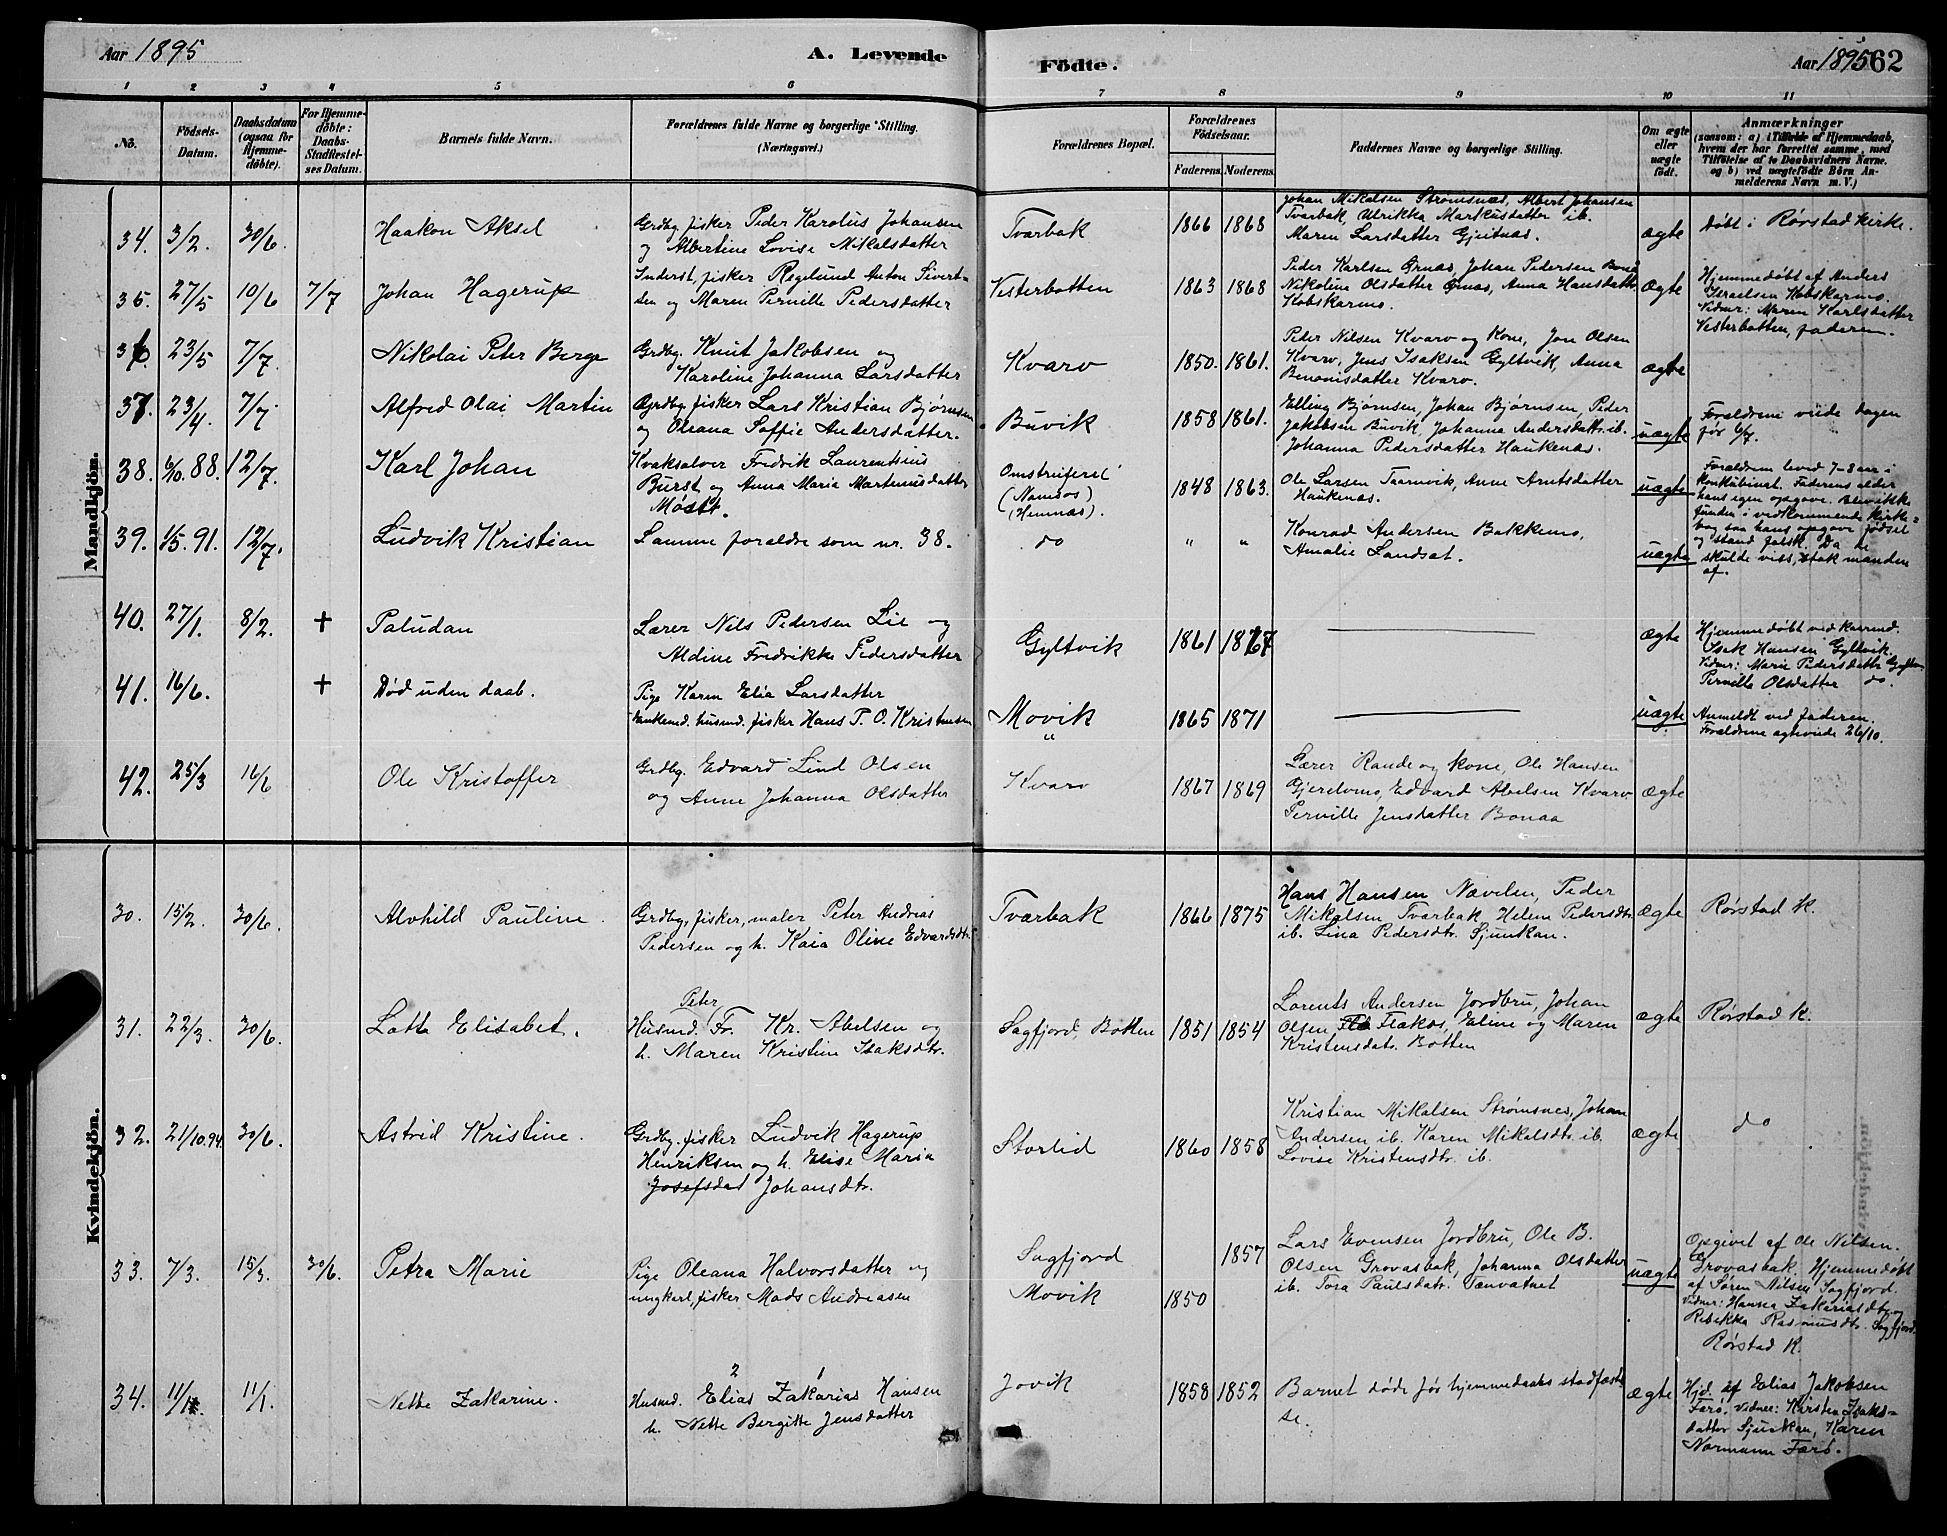 Aar 1895
A. Levende
Födte.
Aar 1895
62
1 2 3 4 5 6 7 8 9 10 11
No.
Födsels-
Datum.
Daabsdatum
(ogsaa for
Hjemme-
döbte).
For Hjemme-
döbte:
Daabs-
Stadfæstel-
ses Datum.
Barnets fulde Navn.
Forældrenes fulde Navne og borgerlige Stilling.
(Næringsvei.)
Forældrenes Bopæl.
Forældrenes
Födselsaar.
Faderens. Moderens.
Faddernes Navne og borgerlige Stilling.
Om ægte
eller
uægte
födt.
Anmærkninger
(saasom: a) i Tilfælde af Hjemmedaab,
hvem der har forrettet samme, med
Tilföielse af to Daabsvidners Navne,
og b) ved uægtefödte Börn An-
melderens Navn m. V.)
Mandkjön.
34. 3/2. 30/6. Haakon Aksel
Grdbg. fisker Peder Karolus Johansen
og Albertine Lovise Mikalsdatter
Tvarbak 1866 1868
Johan Mikalsen Strømsnæs, Albert Johansen
Tvarbak, Ulrikka Markusdatter ib.
Maren Larsdatter Gjeitnæs.
ægte
Døbt i Rørstad kirke.
35. 27/5 10/6 7/7 Johan Hagerup
Inderst, fisker Regelund Anton Sivert-
sen og Maren Pernille Pedersdatter
Vesterbotten 1863 1868
Peder Karlsen Grnæs, Johan Pedersen Bonå
Nikoline Olsdatter Grnæs, Anna Hansdattr.
Kobskarmo.
ægte
Hjemmedøbt af Anders
Israelsen Kobskarmo.
Vidner: Maren Karlsdatter
Vesterbotten, faderen.
36. 23/5 7/7. Nikolai Peter Berge
Grdbg. Knut Jakobsen og
Karoline Johanna Larsdatter
Kvarv 1850. 1861.
Peder Nilsen Kvarv og Kone, Jon Olsen
Kvarv, Jens Isaksen Gyltvik, Anna
Benonisdatter Kvarv.
ægte
37. 23/4. 7/7. Alfred Olai Martin
Grdbg. fisker Lars Kristian Bjørnsen
og Oleana Soffie Andersdatter.
Buvik 1858 1861.
Elling Bjørnsen, Johan Bjørnsen, Peder
Jakobsen Buvik, Johanna Andersdattr. ib.
Johanna Pedersdatter Haukenæs.
uægte
Forældrene viede dagen
før 6/7.
38. 6/10. 88. 12/7. Karl Johan
Kvaksalver Fredrik Laurentsius
Burst og Anna Maria Martinusdatter
Møstr.
Omstreiferel
(Namsos)
(Hemnæs).
1848 1863.
Ole Larsen Taarnvik, Anne Arntsdatter
Haukenæs.
uægte
Forældrene leved 7-8 aar i
konkubinat. Faderens alder
hans egen opgave. Blev ikke
funden i vedkommende kirke-
bog saa hans opgave fødsel
og stand falsk. Da de
skulde vies, stak manden
af.
39. 1/5. 91. 12/7. Ludvik Kristian
Samme forældre som nr. 38.
do " "
Konrad Andersen Bakkemo,
Amalie Landsat.
uægte
40. 27/1. 8/2. + Paludan
Lærer Nils Pedersen Lie og
Aldine Fredrikke Pedersdatter
Gyltvik 1861 1867
ægte
Hjemmedøbt ved kaarmd.
Isak Hansen Gyltvik.
Vidner: Marie Pedersdattr. Gyltv.
Pernille Olsdatter do.
41. 16/6. + Død uden daab.
Pige Karen Elia Larsdatter
Enkemd. husmd. fisker Hans P. O. Kristensen
Movik
"
1865 1871
uægte
Anmeldt ved faderen.
Forældrene egteviede 26/10.
42. 25/3 16/6 Ole Kristoffer
Grdbg. Edvard Lind Olsen
og Anne Johanna Olsdatter
Kvarv 1867 1869
Lærer Rande og kone, Ole Hansen
Gjerelvmo, Edvard Abelsen Kvarv
Pernille Jensdatter Bonaa
ægte
Kvindekjön.
30. 15/2. 30/6. Alvhild Pauline
Grdbg, fisker, maler Peter Andreas
Pedersen og h. Kaia Oline Edvardsdtr.
Tvarbak 1866 1875
Hans Hansen Nævelsn, Peder
Mikalsen Tvarbak, Helene Pedersdtr.
ib. Lina Pedersdtr. Sjunkan.
ægte
Rørstad K.
31. 22/3. 30/6. Lotta Elisabet.
Peter
Husmd. Fr. Kr. Abelsen og
h. Maren Kristine Isaksdtr.
Sagfjord, Botten 1851 1854
Lorents Andersen Jordbru, Johan
Olsen Flakås, Eline og Maren
Kristensdatr. Botten
ægte
Rørstad K.
32. 21/10.94 30/6. Astrid Kristine.
Grdbg. fisker Ludvik Hagerup
Henriksen og h. Elise Maria
Josefsdat Johansdtr.
Storlid 1860 1858
Kristian Mikalsen Strømsnes, Johan
Andersen ib. Karen Mikalsdtr. ib.
Lovise Kristensdtr. ib.
ægte
do
33. 7/3. 15/3. 30/6. Petra Marie
Pige Oleana Halvorsdatter og
ungkarl, fisker Mads Andreasen
Sagfjord 1857
Movik 1850
Lars Evensen Jordbru, Ole B.
Olsen Grovasbak, Johanna Olsdatter
ib. Tora Paulsdatr. Tænvatnet
uægte
Opgivet af Ole Nilsen.
Grovasbak. Hjemmedøbt
af Søren Nilsen Sagfjord.
Vidner: Hansea Zakariasdtr. og
Rebekka Rasmusdtr. Sagfjord.
Rørstad K.
34. 11/1. 11/1. Nette Zakarine.
2 1
Husmd. Elias Zakarias Hansen
h. Nette Bergitte Jensdatter
Jovik 1858 1852
Barnet døde før hjemmedaabs stadfæstel-
se.
ægte
Hjd. af Elias Jakobsen
Færø. Vidner: Kirsten Isaks-
datter Sjunkan, Karen
Normann Færö.